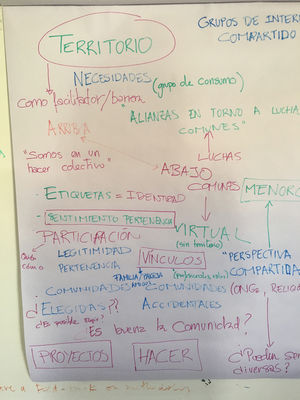 GRUPOS DE INTER
COMPARTIDO
TERRITORIO
NECESIDADES (grupo de consumo)
Como facilitador/barrera
"ALIANZAS EN TORNO A LUCHA
COMUNES"
ARRIBA
LUCHAS
"Somos en un
hacer colectivo"
ABAJO
COMUNES
MENORC
· ETIQUETAS = IDENTIDAD
· SENTIMIENTO PERTENENCIA
VIRTUAL
(sin territorio)
PARTICIPACIÓN
Quién
cómo
LEGITIMIDAD
PERTENENCIA
VÍNCULOS
"PERSPECTIVA
COMPARTIDA
FAMILIA/PAREJA
AMIGOS
· COMUNIDADES
COMUNIDADES
(ONGs, RELIGIO
¿ELEGIDAS??
ACCIDENTALES
¿Es posible elegir?
¿Es buena la Comunidad?
PROYECTOS
HACER
¿Pueden ser
diversas?